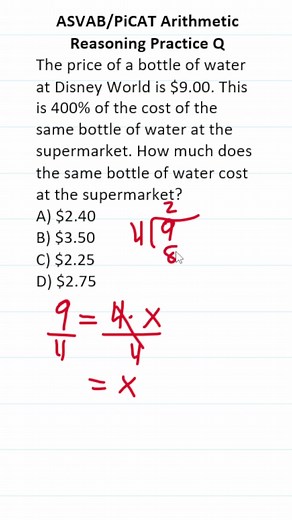 ASVAB/PiCAT Arithmetic
Reasoning Practice Q
The price of a bottle of water
at Disney World is $9.00. This
is 400% of the cost of the
same bottle of water at the
supermarket. How much does
the same bottle of water cost
at the supermarket?
A) $2.40
B) $3.50
C) $2.25
D) $2.75
2
4 9
8
9 = 4 · x
4 4
= x